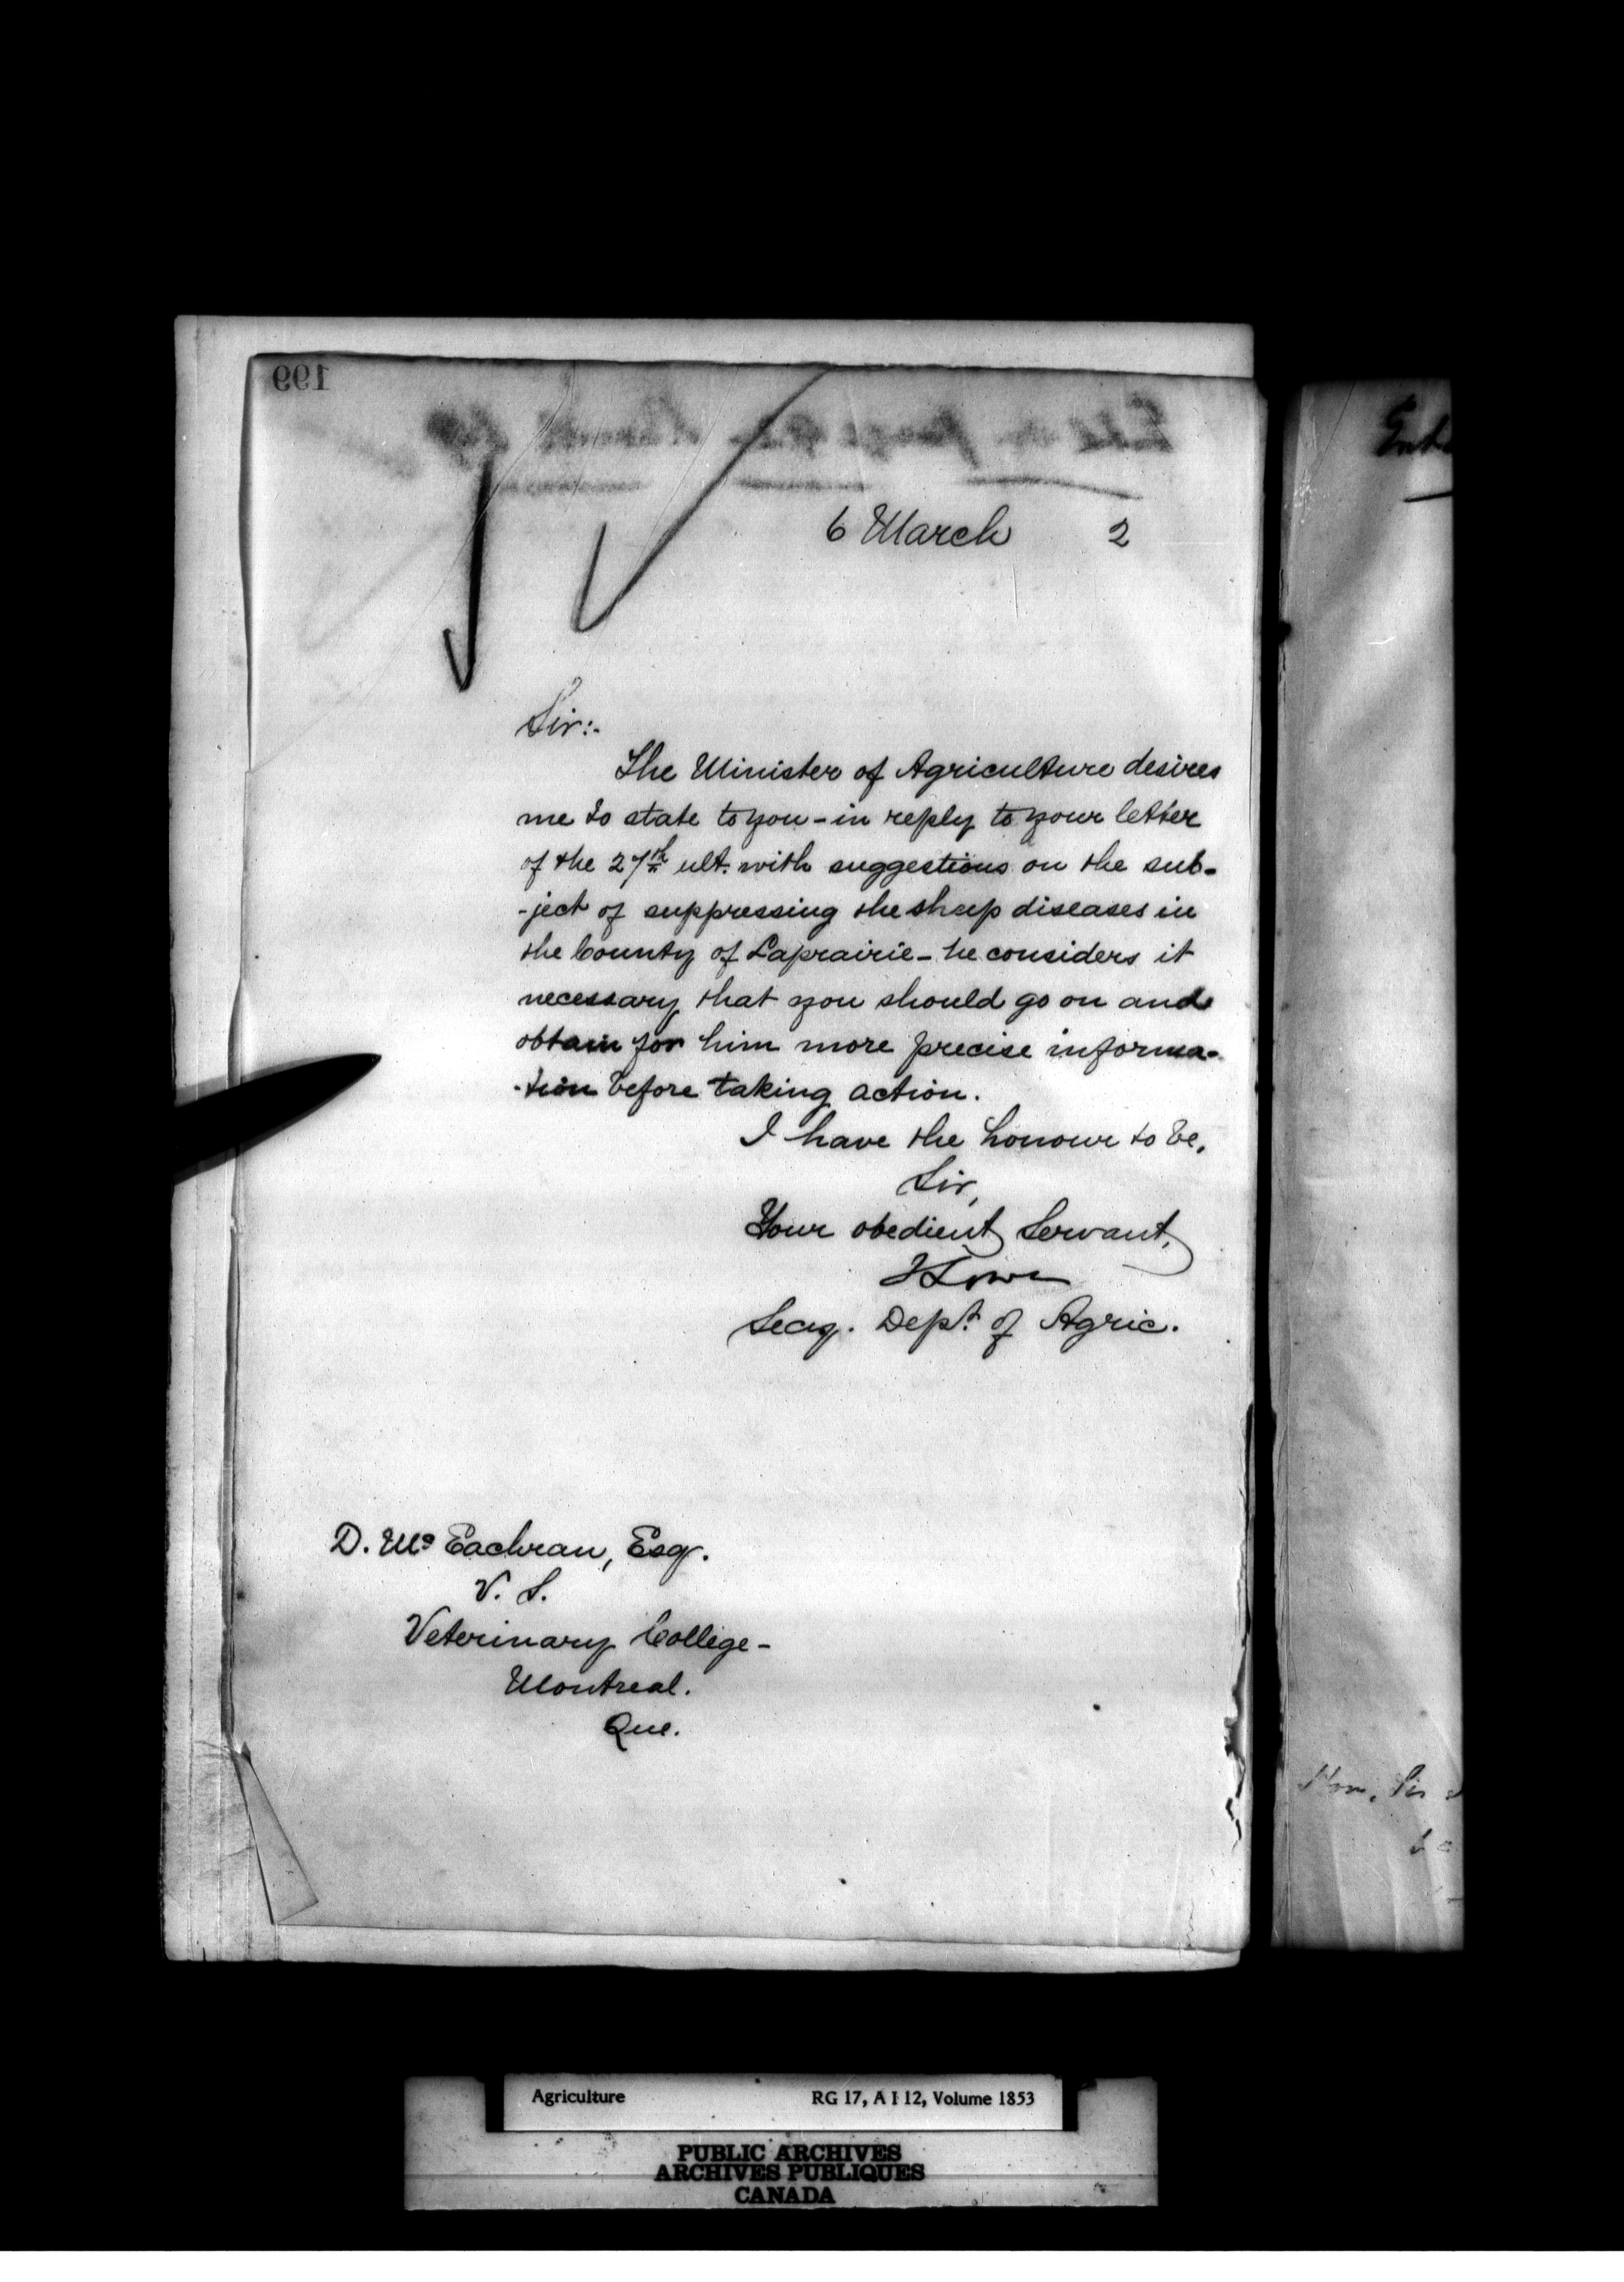 199
6 March 2
Sir:-
The Minister of Agriculture desires
me to state to you - in reply to your letter
of the 27th ult. with suggestions on the sub-
-ject of suppressing the sheep diseases in
the County of Laprairie - he considers it
necessary that you should go on and
obtain for him more precise informa-
-tion before taking action.
I have the honour to be,
Sir,
Your obedient Servant,
J Lowe
Secy. Dept. of Agric.
D. Mc Eachran, Esq.
V. S.
Veterinary College -
Montreal.
Que.
Hon. Sir
Agriculture RG 17, A I 12, Volume 1853
PUBLIC ARCHIVES
ARCHIVES PUBLIQUES
CANADA